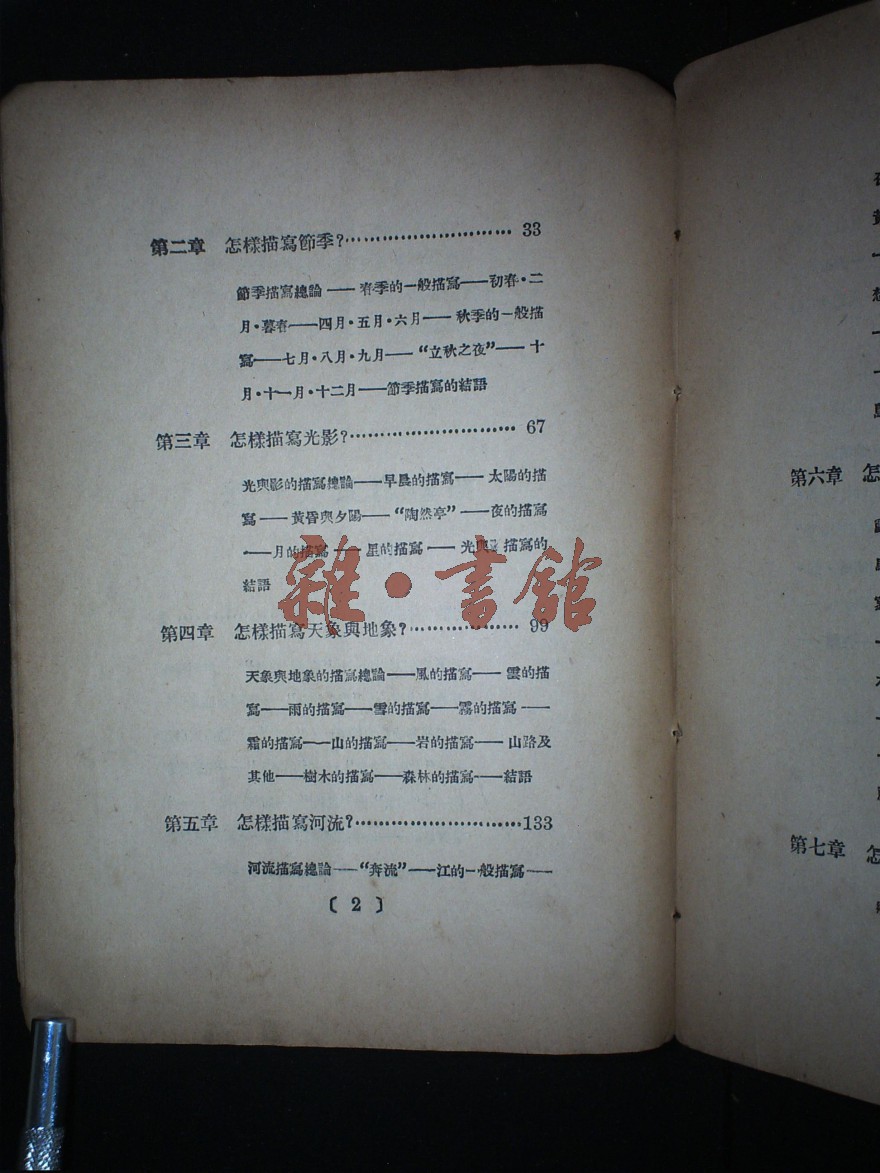 第二章 怎樣描寫節季?⋯⋯⋯⋯⋯⋯⋯⋯⋯ 33
節季描寫總論——春季的一般描寫——初春·二
月·暮春——四月·五月·六月——秋季的一般描
寫——七月·八月·九月——“立秋之夜”——十
月·十一月·十二月——節季描寫的結語
第三章 怎樣描寫光影?⋯⋯⋯⋯⋯⋯⋯⋯⋯ 67
光與影的描寫總論——早晨的描寫——太陽的描
寫——黃昏與夕陽——“陶然亭”——夜的描寫
——月的描寫——星的描寫——光與影描寫的
結語
雜·書館
第四章 怎樣描寫天象與地象?⋯⋯⋯⋯⋯⋯ 99
天象與地象的描寫總論——風的描寫——雲的描
寫——雨的描寫——雪的描寫——霧的描寫——
霜的描寫——山的描寫——岩的描寫——山路及
其他——樹木的描寫——森林的描寫——結語
第五章 怎樣描寫河流?⋯⋯⋯⋯⋯⋯⋯⋯⋯133
河流描寫總論——“奔流”——江的一般描寫——
〔 2 〕
第六章 怎
第七章 怎